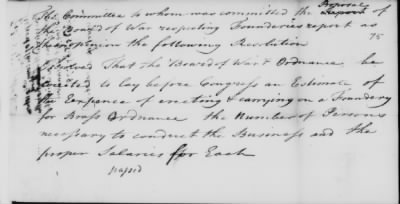 Proposal
The Committee to whom was committed the Report of
the Board of War respecting Founderies report as
their opinion the following Resolution
75
Resolved That the Board of War & Ordnance be
directed to lay before Congress an Estimate of
the Expence of erecting & carrying on a Foundery
for Brass Ordnance the Number of Persons
necessary to conduct the Business and the
proper Salaries for Each
passed